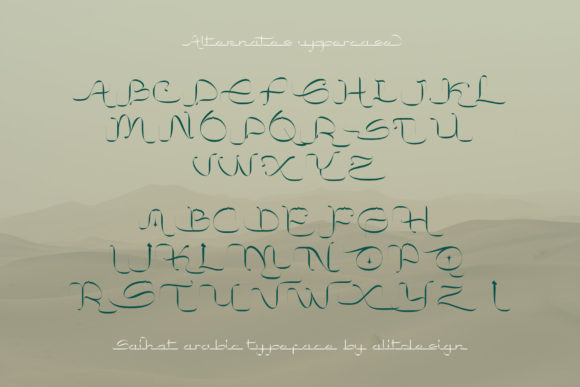 Alternates uppercase
ABCDEFGHIJKL
MNOPQRSTU
VWXYZ
ABCDEFGH
IJKLMNOPQ
RSTUVWXYZ
Saihat arabic typeface by alitdesign